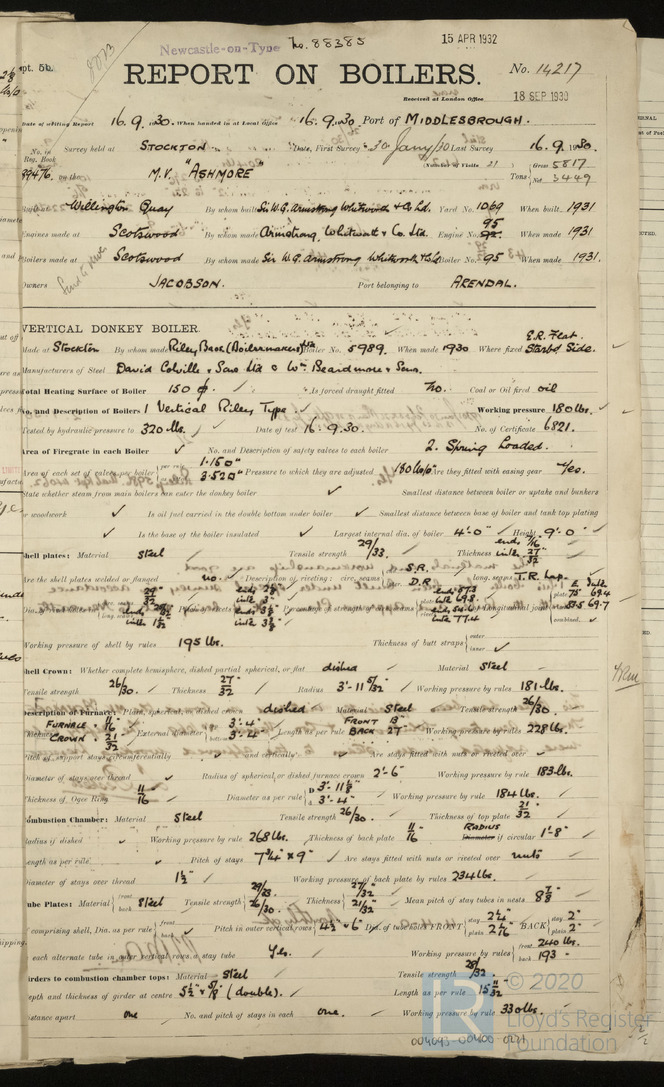 Newcastle-on-Tyne No. 88385 15 APR 1932
pt. 5b.
REPORT ON BOILERS. No. 14217
Received at London Office 18 SEP 1930
Date of writing Report 16.9.1930. When handed in at Local Office 16.9.1930 Port of MIDDLESBROUGH.
No. in Reg. Book Survey held at STOCKTON Date, First Survey 30 Jany/30 Last Survey 16.9.1930.
39476. on the M.V. "ASHMORE" Number of Visits 21 Tons Gross 5817 Net 3449
Built Willington Quay By whom built Sir W.G. Armstrong Whitworth & Co Ld. Yard No. 1069 When built 1931
Engines made at Scotswood By whom made Armstrong, Whitworth & Co. Ltd. Engine No. 95 When made 1931
Boilers made at Scotswood By whom made Sir W.G. Armstrong Whitworth & Co Ld Boiler No. 95 When made 1931.
Owners JACOBSON. Port belonging to ARENDAL.
VERTICAL DONKEY BOILER.
Made at Stockton By whom made Riley Bros (Boilermakers) Ltd Boiler No. 5989. When made 1930 Where fixed E.R. Flat. Starbd Side.
Manufacturers of Steel David Colville & Sons Ltd & Wm Beardmore & Sons.
Total Heating Surface of Boiler 150 Is forced draught fitted No. Coal or Oil fired oil
No. and Description of Boilers 1 Vertical Riley Type Working pressure 180 lbs.
Tested by hydraulic pressure to 320 lbs. Date of test 16.9.30. No. of Certificate 6821.
Area of Firegrate in each Boiler No. and Description of safety valves to each boiler 2. Spring Loaded.
Area of each set of valves per boiler per rule 1.150" 3.520" Pressure to which they are adjusted 180 lbs/□" Are they fitted with easing gear Yes.
State whether steam from main boilers can enter the donkey boiler Smallest distance between boiler or uptake and bunkers
or woodwork Is oil fuel carried in the double bottom under boiler Smallest distance between base of boiler and tank top plating
Is the base of the boiler insulated Largest internal dia. of boiler 4'-0" Height 9'-0"
Shell plates: Material Steel Tensile strength 29/33. Thickness ends 7/16 inter. 27/32
Are the shell plates welded or flanged no. Description of riveting: circ. seams S.R. D.R. long. seams T.R. Lap.
Working pressure of shell by rules 195 lbs. Thickness of butt straps outer inner
Shell Crown: Whether complete hemisphere, dished partial spherical, or flat dished Material Steel
Tensile strength 26/30. Thickness 27/32 Radius 3'-11 5/32" Working pressure by rules 181 lbs.
Description of Furnace: Plain, spherical, or dished crown dished Material Steel Tensile strength 26/30
Thickness FURNACE 11/16 CROWN 21/32 External diameter 3'.4" 3'.4" Length as per rule FRONT 13" BACK 27 Working pressure by rules 228 lbs.
Pitch of support stays circumferentially and vertically Are stays fitted with nuts or riveted over
Diameter of stays over thread Radius of spherical or dished furnace crown 2'-6" Working pressure by rule 183 lbs.
Thickness of Ogee Ring 11/16 Diameter as per rule 3'-11 1/8" 3'-4" Working pressure by rule 184 lbs.
Combustion Chamber: Material Steel Tensile strength 26/30 Thickness of top plate 21/32
Radius if dished Working pressure by rule 268 lbs. Thickness of back plate 11/16 RADIUS Diameter if circular 1'-8"
Length as per rule Pitch of stays 7 3/4" x 9" Are stays fitted with nuts or riveted over nuts
Diameter of stays over thread 1 1/2" Working pressure of back plate by rules 234 lbs.
Tube Plates: Material front back Steel Tensile strength 29/33 26/30. Thickness 27/32 21/32" Mean pitch of stay tubes in nests 8 7/8"
If comprising shell, Dia. as per rule front back Pitch in outer vertical rows 4 1/2 x 6" Dia. of tubes FRONT stay 2 1/4" plain 2 1/16" BACK stay 2" plain 2"
Is each alternate tube in outer vertical rows a stay tube Yes. Working pressure by rules front 240 lbs. back 193
Girders to combustion chamber tops: Material Steel Tensile strength 28/32.
Depth and thickness of girder at centre 5 1/2" x 5/8 (double). Length as per rule 15 11/32
Distance apart one No. and pitch of stays in each one. Working pressure by rule 330 lbs.
© 2020
Lloyd's Register
Foundation
004093-004100-0221